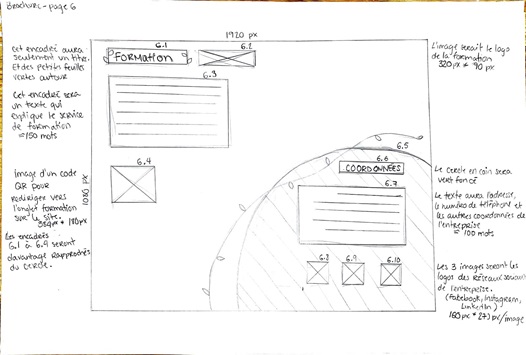 Brochure - page 6
1920 px
6.1
6.2
FORMATION
6.3
Cet encadré aura
seulement un titre.
Et des petits feuilles
vertes autour
Cet encadré sera
un texte qui
explique le service
de formation
≈150 mots
image d'un code
QR pour
rediriger vers
l'onglet formation
sur le site.
Les encadrés
6.1 à 6.9 seront
davantage rapprochés
du cercle.
1080 px
6.4
6.5
6.6
COORDONNÉES
6.7
6.8
6.9
6.10
L'image serait le logo
de la formation
320 px * 90 px
Le cercle en coin sera
vert foncé
Le texte aura l'adresse,
le numéro de téléphone et
les autres coordonnées de
l'entreprise
≈ 100 mots
Les 3 images seront les
logos des réseaux sociaux
de l'entreprise.
(Facebook, Instagram,
LinkedIn)
px/image